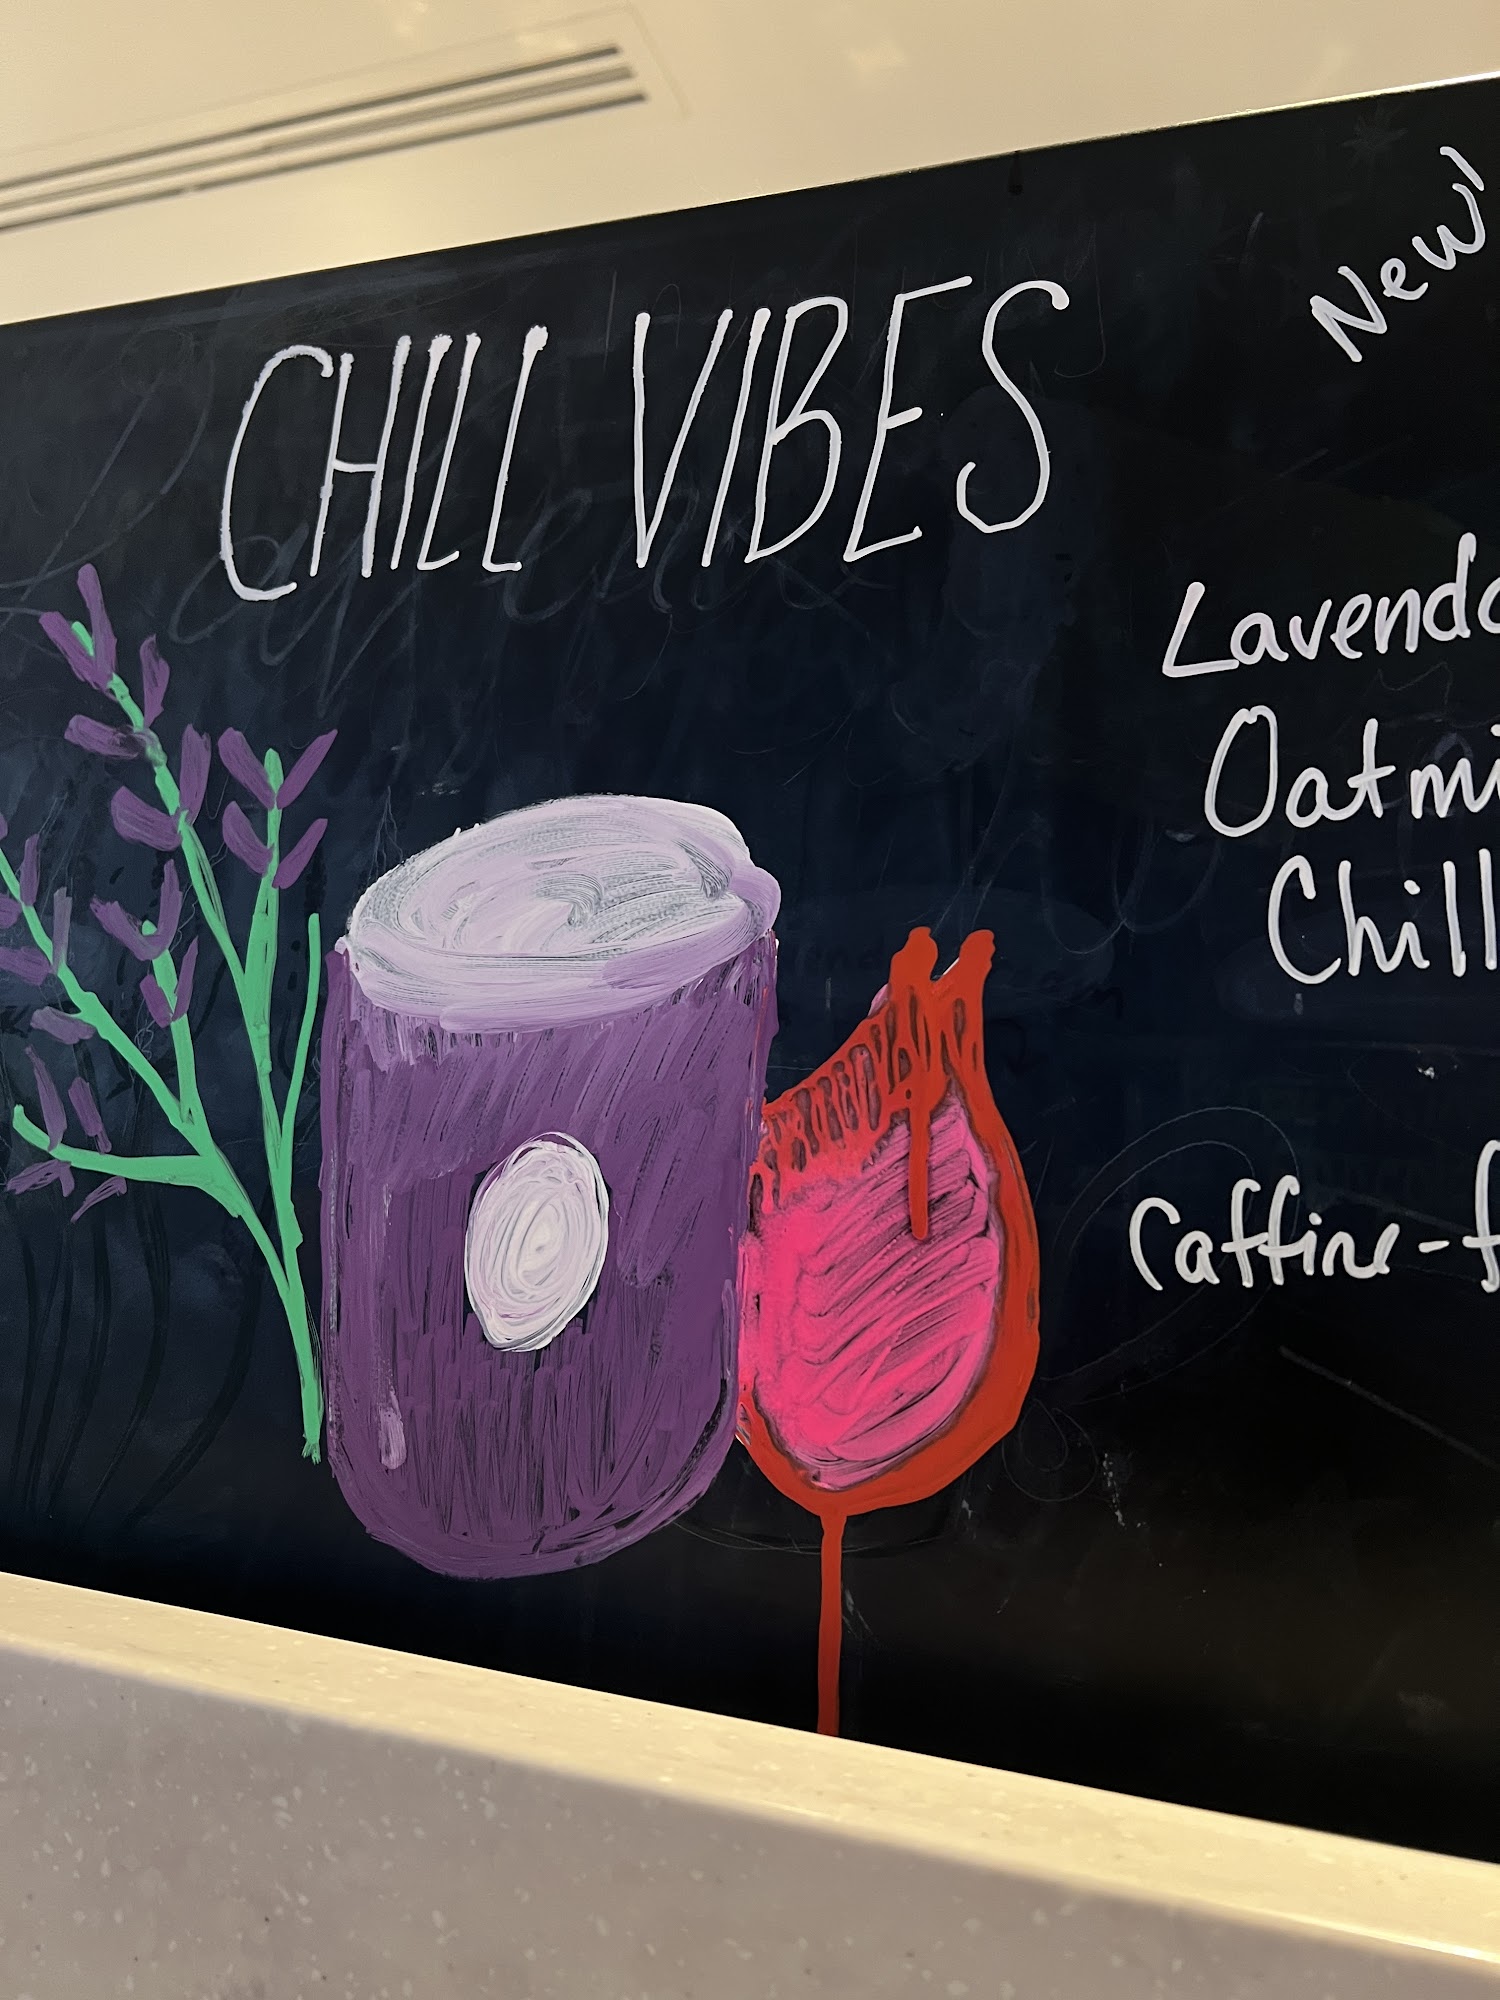 CHILL VIBES
New
Lavend
Oatmi
Chill
Caffine-f